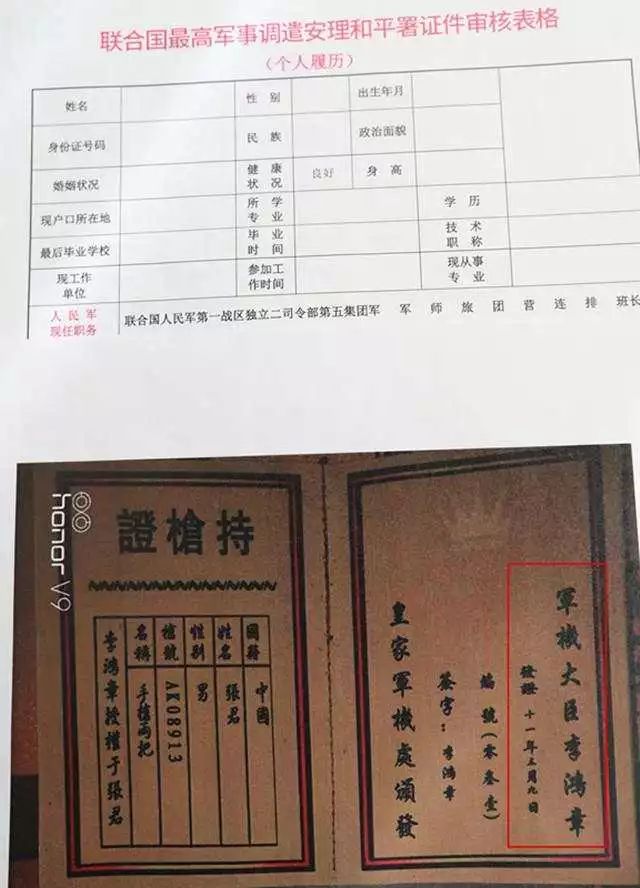 联合国最高军事调遣安理和平署证件审核表格
（个人履历）
姓名 性别 出生年月
身份证号码 民族 政治面貌
婚姻状况 健康状况 良好 身高
现户口所在地 所学专业 学历
最后毕业学校 毕业时间 技术职称
现工作单位 参加工作时间 现从事专业
人民军现任职务 联合国人民军第一战区独立二司令部第五集团军 军 师 旅 团 营 连 排 班长
honor V9
持槍證
國籍 中國
姓名 張君
性别 男
槍號 AK08913
名稱 手槍両把
李鴻章授權于張君
軍機大臣李鴻章
發證 十一年三月九日
編號(零叁壹)
簽字：李鴻章
皇家軍機處頒發